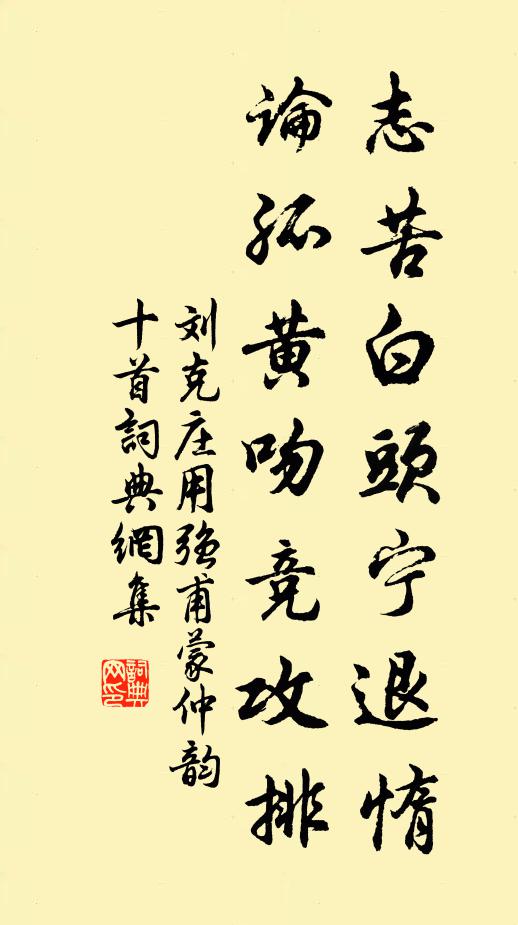 志苦白頭宁退惰
論孤黄吻竞攻排
刘克庄用强甫蒙仲韵
十首詞典網集
詞典网印